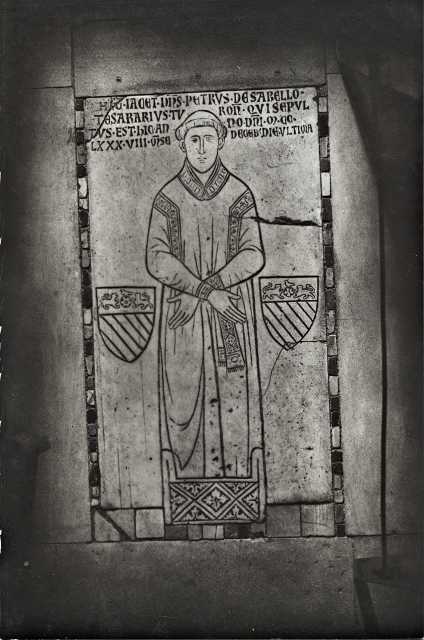 HIC·IACET·DNS·PETRVS·DE SABELLO·
TESARARIVS·TV RON·QVI SEPVL
TVS·EST·HIC·AN NO·DNI·M·CC·
LXXX·VIII·MSE DECEB·DIE·VLTIMA